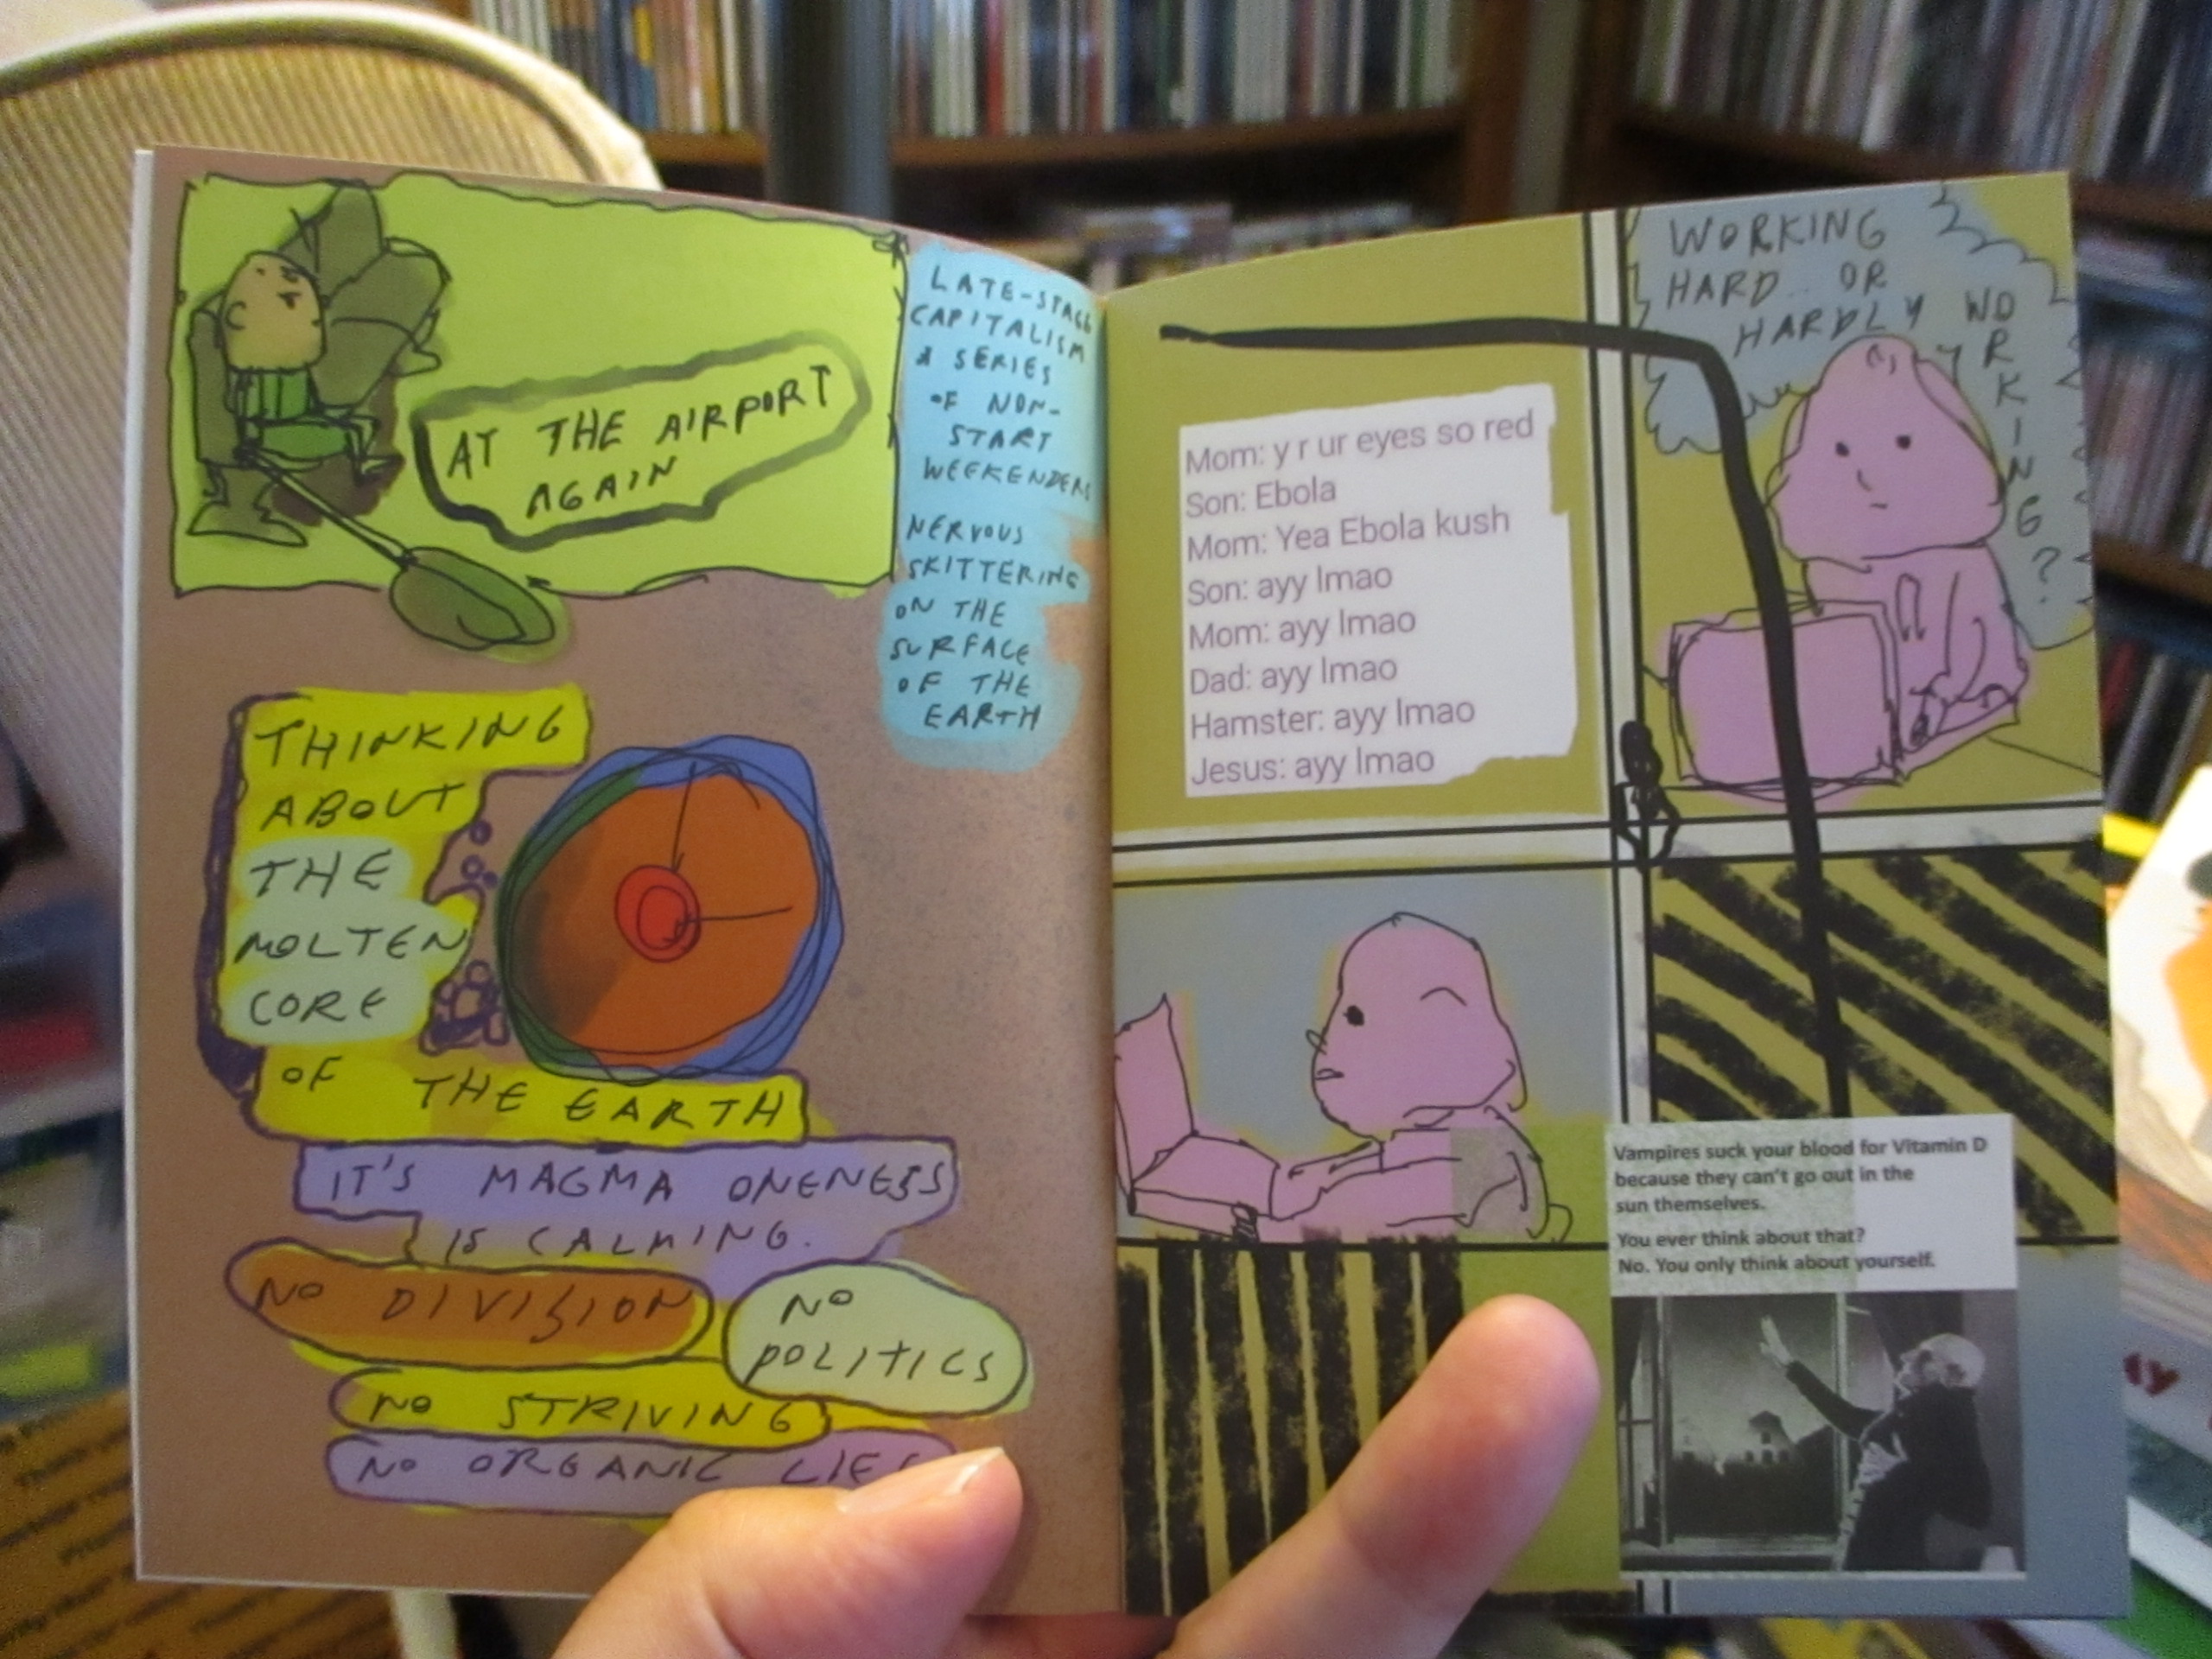 AT THE AIRPORT
AGAIN
LATE-STAGE
CAPITALISM
A SERIES
OF NON-
START
WEEKENDERS
NERVOUS
SKITTERING
ON THE
SURFACE
OF THE
EARTH
THINKING
ABOUT
THE
MOLTEN
CORE
OF THE EARTH
IT'S MAGMA ONENESS
IS CALMING.
NO DIVISION
NO
POLITICS
NO STRIVING
NO ORGANIC
Mom: y r ur eyes so red
Son: Ebola
Mom: Yea Ebola kush
Son: ayy lmao
Mom: ayy lmao
Dad: ayy lmao
Hamster: ayy lmao
Jesus: ayy lmao
WORKING
HARD.. OR
HARDLY WORKING?
Vampires suck your blood for Vitamin D
because they can't go out in the
sun themselves.
You ever think about that?
No. You only think about yourself.